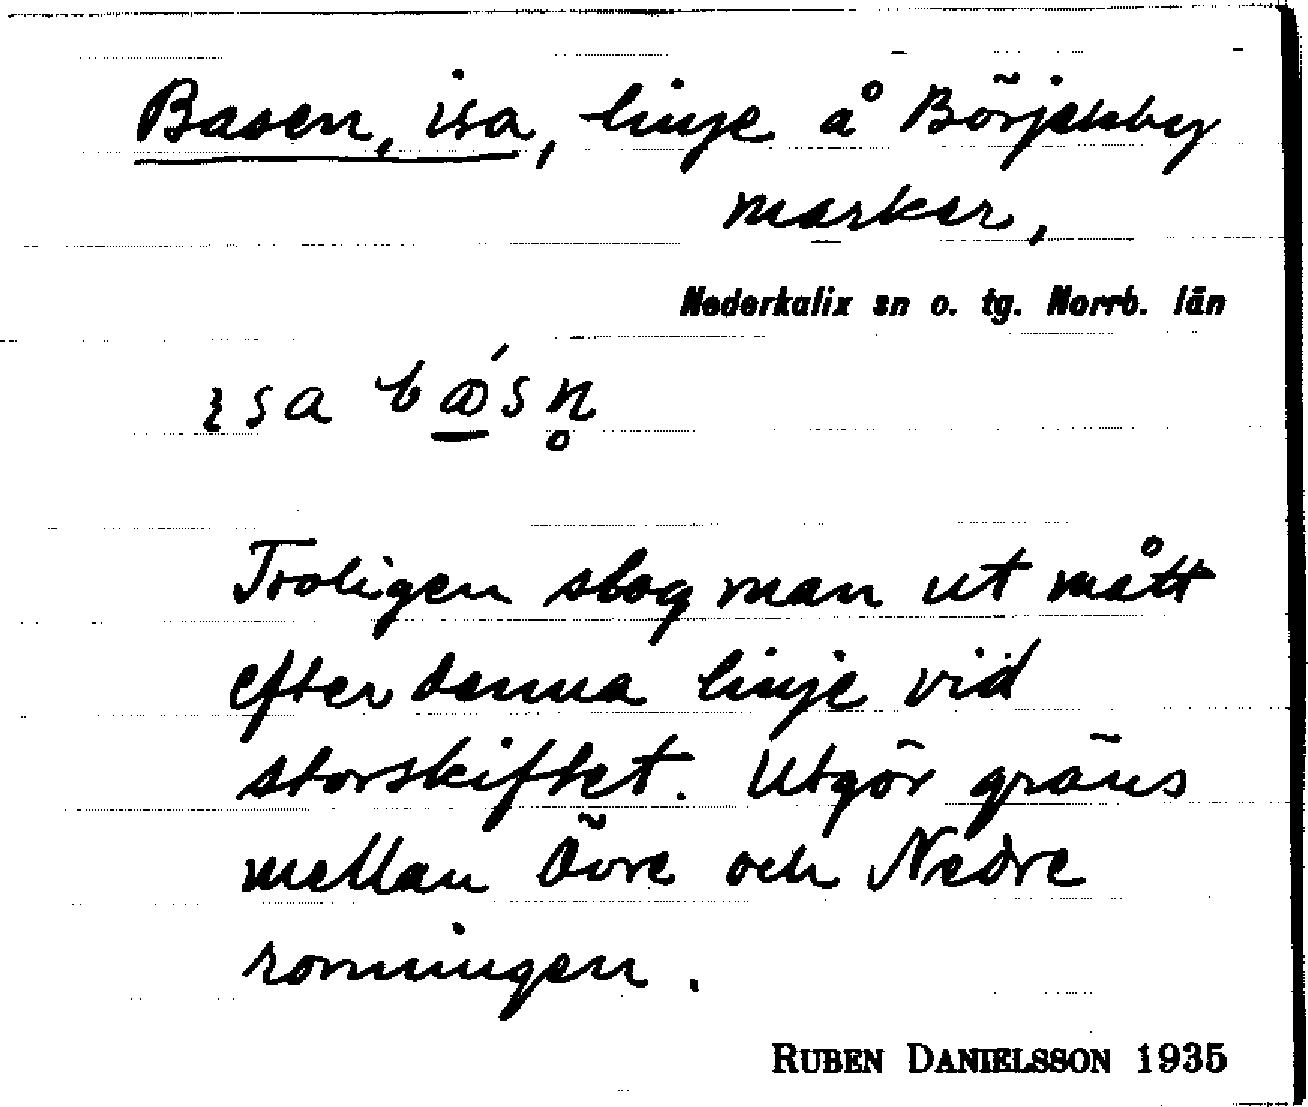 Basen, isa, linje å Börjelsby
marker,
Nederkalix sn o. tg. Norrb. län
ısa bǽsn̥
Troligen slog man ut mått
efter denna linje vid
storskiftet. Utgör gräns
mellan Övre och Nedre
ronningen.
RUBEN DANIELSSON 1935